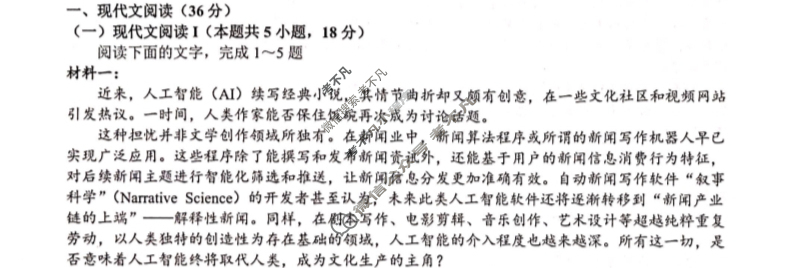 一、现代文阅读（36分）
（一）现代文阅读 I（本题共 5 小题，18 分）
阅读下面的文字，完成 1～5 题
材料一：
近来，人工智能（AI）续写经典小说，其情节曲折却又颇有创意，在一些文化社区和视频网站
引发热议。一时间，人类作家能否保住饭碗再次成为讨论话题。
这种担忧并非文学创作领域所独有。在新闻业中，新闻算法程序或所谓的新闻写作机器人早已
实现广泛应用。这些程序除了能撰写和发布新闻资讯外，还能基于用户的新闻信息消费行为特征，
对后续新闻主题进行智能化筛选和推送，让新闻信息分发更加准确有效。自动新闻写作软件“叙事
科学”（Narrative Science）的开发者甚至认为，未来此类人工智能软件还将逐渐转移到“新闻产业
链的上端”——解释性新闻。同样，在剧本写作、电影剪辑、音乐创作、艺术设计等超越纯粹重复
劳动，以人类独特的创造性为存在基础的领域，人工智能的介入程度也越来越深。所有这一切，是
否意味着人工智能终将取代人类，成为文化生产的主角？